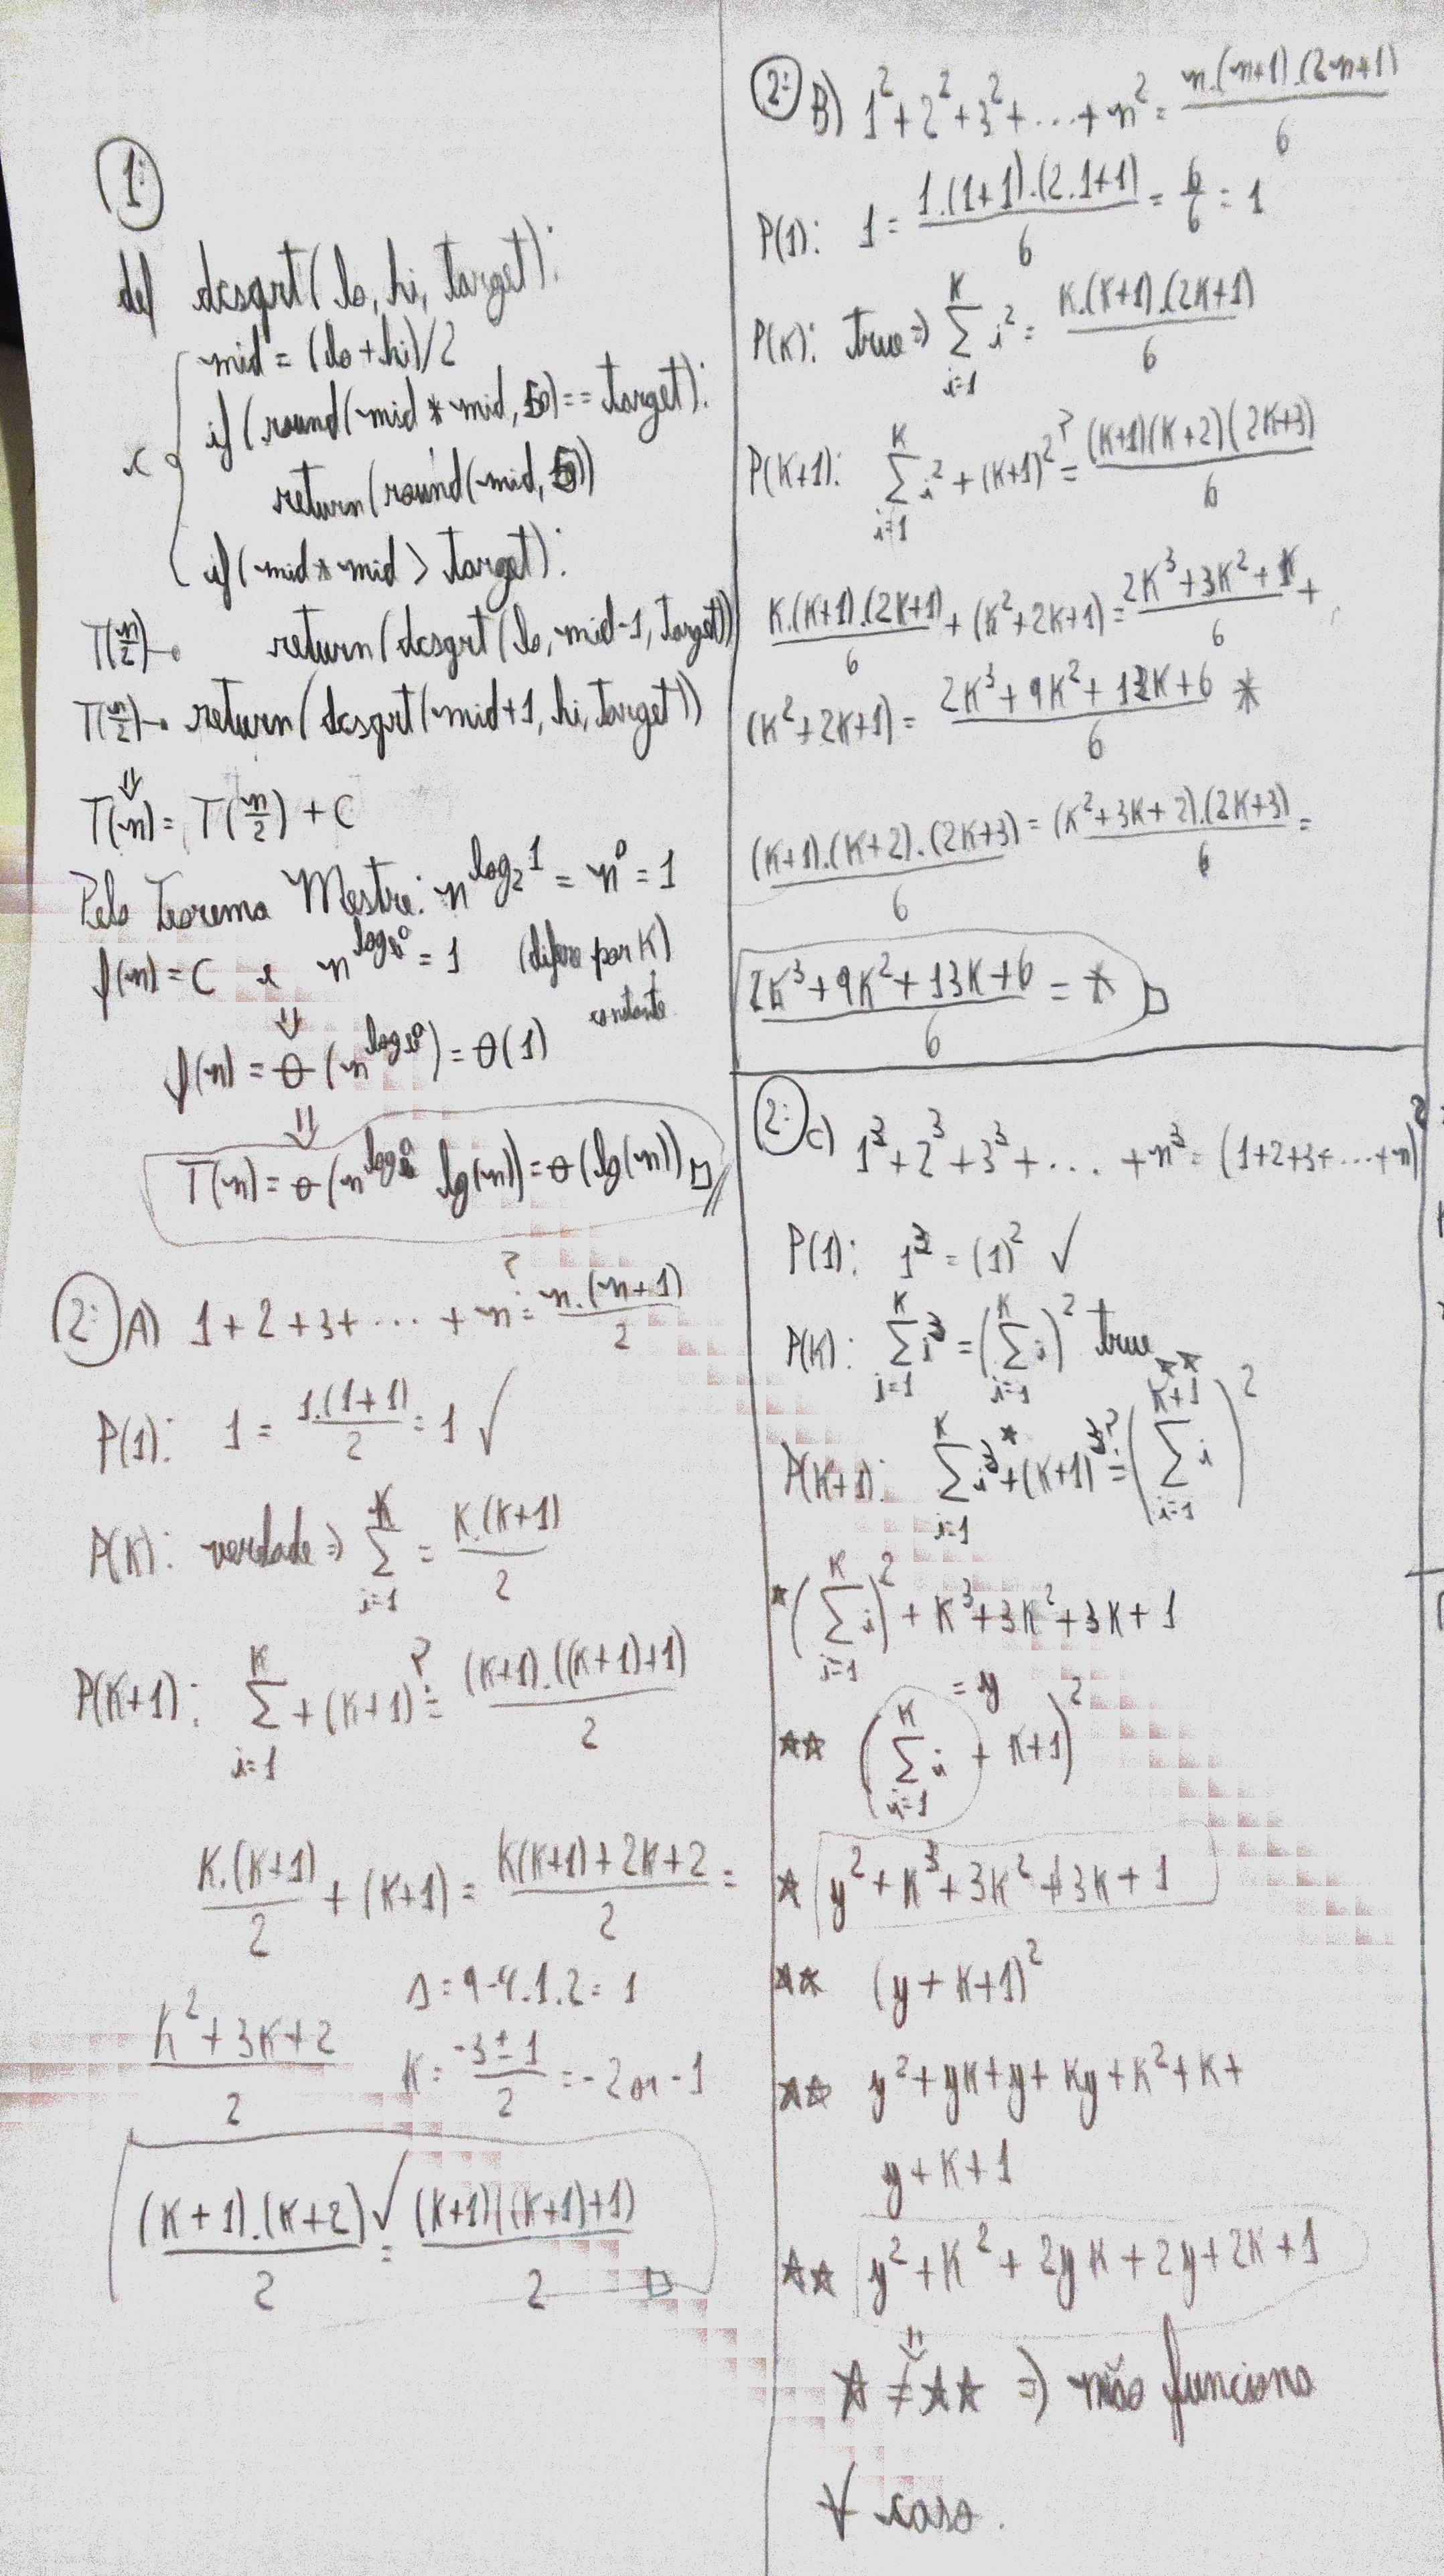 1:
def dcsqrt(lo, hi, target):
mid = (lo + hi)/2
if (round(mid * mid, 10) == target):
c
return(round(mid, 5))
if (mid * mid > target):
T(n/2) → return(dcsqrt(lo, mid-1, target))
T(n/2) → return(dcsqrt(mid+1, hi, target))
⇓
T(n) = T(n/2) + C
Pelo Teorema Mestre: n^log₂1 = n^0 = 1
f(n) = C e n^log_b a = 1 (difere por K)
constante
⇓
f(n) = θ(n^log_b a) = θ(1)
⇓
T(n) = θ(n^log_b a lg(n)) = θ(lg(n)) □
2: A) 1 + 2 + 3 + ... + n ?= n.(n+1)/2
P(1): 1 = 1.(1+1)/2 = 1 ✓
P(K): verdade ⇒ ∑_{i=1}^{K} = K.(K+1)/2
P(K+1): ∑_{i=1}^{K} + (K+1) ?= (K+1).((K+1)+1)/2
K.(K+1)/2 + (K+1) = K(K+1)+2K+2/2 =
Δ = 9-4.1.2 = 1
K²+3K+2/2 K = -3±1/2 = -2 or -1
(K+1).(K+2)/2 =✓ (K+1)((K+1)+1)/2 □
2: B) 1² + 2² + 3² + ... + n² = n.(n+1).(2n+1)/6
P(1): 1 = 1.(1+1).(2.1+1)/6 = 6/6 = 1
P(K): true ⇒ ∑_{i=1}^{K} i² = K.(K+1).(2K+1)/6
P(K+1): ∑_{i=1}^{K} i² + (K+1)² ?= (K+1)(K+2)(2K+3)/6
K.(K+1).(2K+1)/6 + (K²+2K+1) = 2K³+3K²+K/6 +
(K²+2K+1) = 2K³+9K²+13K+6/6 *
(K+1).(K+2).(2K+3)/6 = (K²+3K+2).(2K+3)/6 =
2K³+9K²+13K+6/6 = * □
2: C) 1³ + 2³ + 3³ + ... + n³ = (1+2+3+...+n)²
P(1): 1³ = (1)² ✓
P(K): ∑_{i=1}^{K} i³ = (∑_{i=1}^{K} i)² true
P(K+1): ∑_{i=1}^{K} i³ + (K+1)³ ?= (∑_{i=1}^{K+1} i)²
* **
* (∑_{i=1}^{K} i)² + K³ + 3K² + 3K + 1
= y
** (∑_{i=1}^{K} i + K+1)²
* y² + K³ + 3K² + 3K + 1
** (y + K+1)²
** y² + yK + y + Ky + K² + K +
y + K + 1
** y² + K² + 2yK + 2y + 2K + 1
⇓
* ≠ ** ⇒ não funciona
∀ caso.